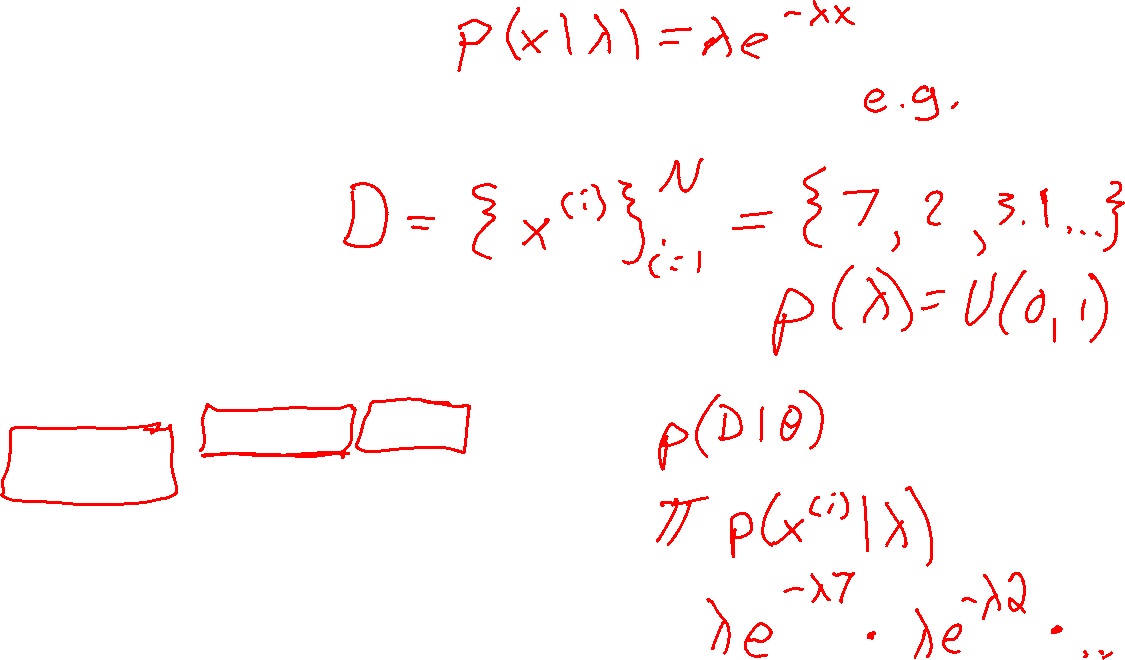 p(x|λ) = λe^{-λx}
e.g.
D = {x^{(i)}}_{i=1}^{N} = {7, 2, 3.1, ...}
p(λ) = U(0,1)
p(D|θ)
π p(x^{(i)}|λ)
λe^{-λ7} · λe^{-λ2} · ..